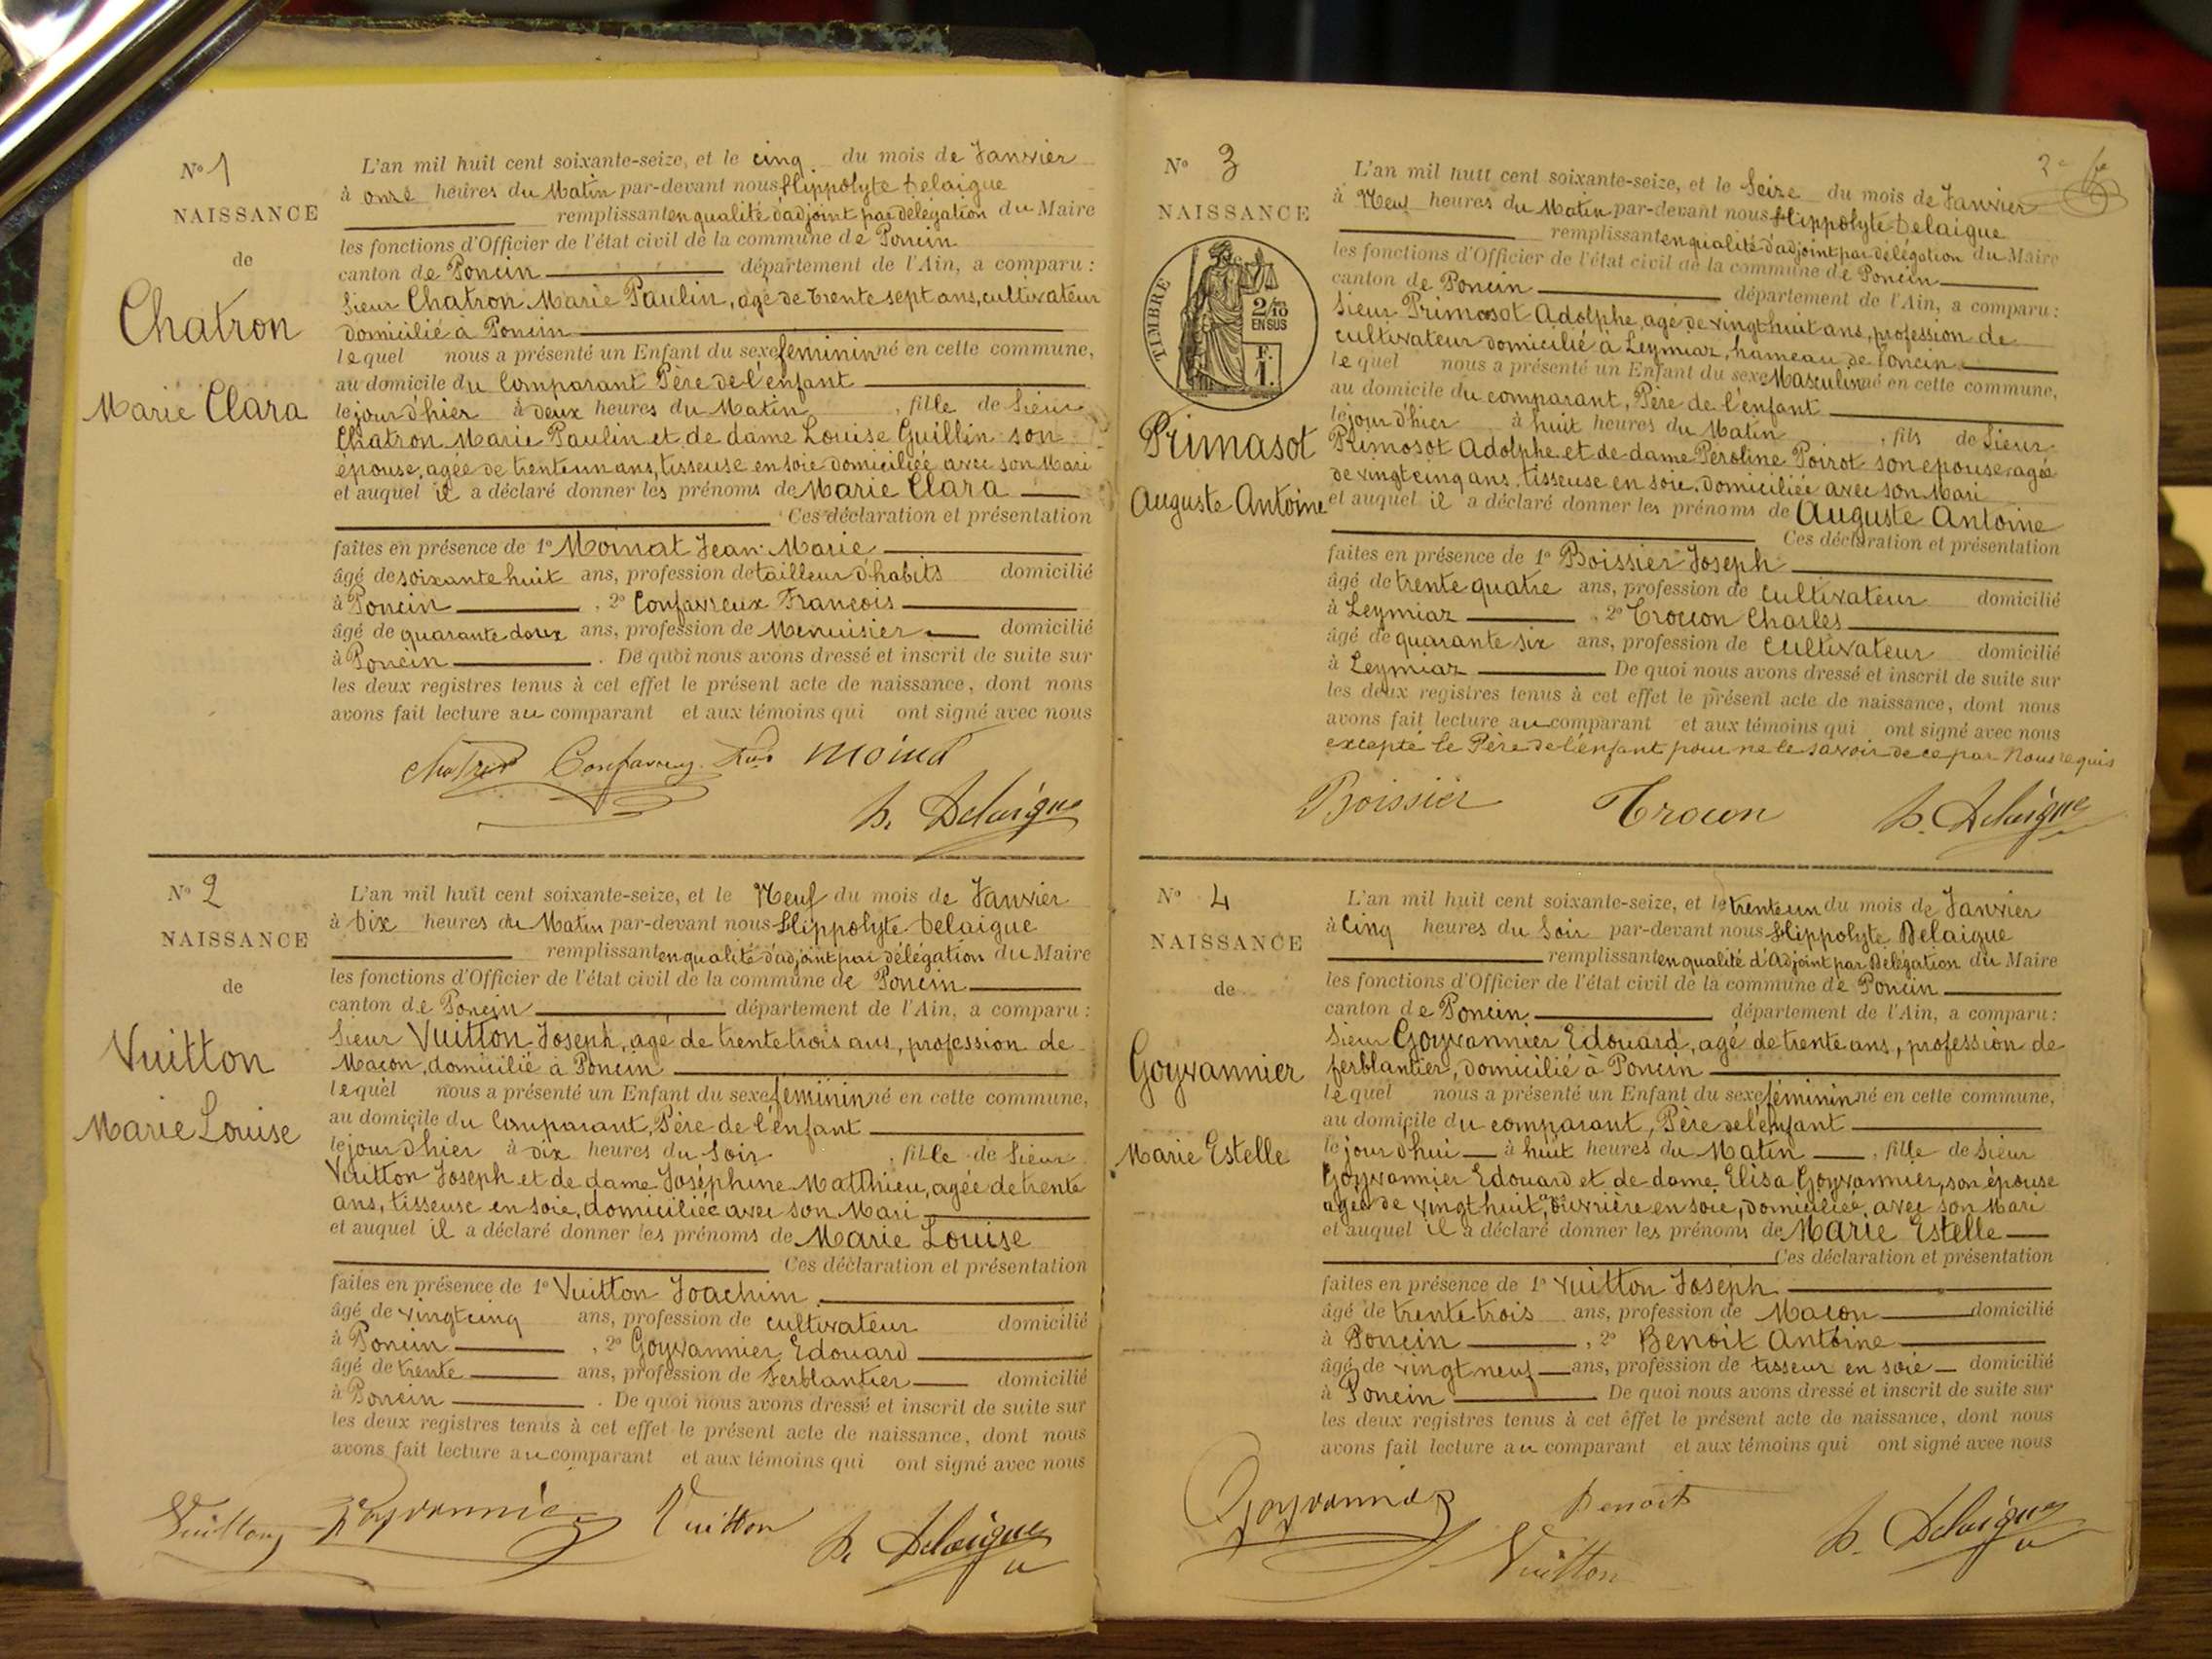 N° 1
NAISSANCE
de
Chatron
Marie Clara
L'an mil huit cent soixante-seize, et le cinq du mois de Janvier
à onze heures du Matin par-devant nous Hippolyte Delaigue
remplissant en qualité d'adjoint par délégation du Maire
les fonctions d'Officier de l'état civil de la commune de Poncin
canton de Poncin département de l'Ain, a comparu :
Sieur Chatron Marie Paulin, agé de trente sept ans, cultivateur
domicilié a Poncin
lequel nous a présenté un Enfant du sexe feminin né en cette commune,
au domicile du Comparant Père de l'enfant
le jour d'hier à deux heures du Matin, fille de Sieur
Chatron Marie Paulin et de dame Louise Guillin son
épouse, agée de trente un ans, tisseuse en soie domiciliée avec son Mari
et auquel il a déclaré donner les prénoms de Marie Clara
Ces déclaration et présentation
faites en présence de 1° Moinat Jean-Marie
âgé de soixante huit ans, profession de tailleur d'habits domicilié
à Poncin, 2° Confavreux François
âgé de quarante deux ans, profession de Menuisier domicilié
à Poncin. De quoi nous avons dressé et inscrit de suite sur
les deux registres tenus à cet effet le présent acte de naissance, dont nous
avons fait lecture au comparant et aux témoins qui ont signé avec nous
Chatron Confavreux Moinat
h. Delaigue
N° 2
NAISSANCE
de
Vuitton
Marie Louise
L'an mil huit cent soixante-seize, et le Neuf du mois de Janvier
à Dix heures du Matin par-devant nous Hippolyte Delaigue
remplissant en qualité d'adjoint par délégation du Maire
les fonctions d'Officier de l'état civil de la commune de Poncin
canton de Poncin département de l'Ain, a comparu :
Sieur Vuitton Joseph, agé de trente trois ans, profession de
Maçon, domicilié à Poncin
lequel nous a présenté un Enfant du sexe féminin né en cette commune,
au domicile du Comparant, Père de l'enfant
le jour d'hier à dix heures du Soir, fille de Sieur
Vuitton Joseph et de dame Joséphine Matthieu, agée de trente
ans, tisseuse en soie, domiciliée avec son Mari
et auquel il a déclaré donner les prénoms de Marie Louise
Ces déclaration et présentation
faites en présence de 1° Vuitton Joachim
âgé de vingt cinq ans, profession de cultivateur domicilié
à Poncin, 2° Goyvannier Edouard
âgé de trente ans, profession de Ferblantier domicilié
à Poncin. De quoi nous avons dressé et inscrit de suite sur
les deux registres tenus à cet effet le présent acte de naissance, dont nous
avons fait lecture au comparant et aux témoins qui ont signé avec nous
Vuitton Goyvannier Vuitton h. Delaigue
N° 3
NAISSANCE
TIMBRE
2/10
EN SUS
F.
1.
Primasot
Auguste Antoine
L'an mil huit cent soixante-seize, et le Seize du mois de Janvier
à Neuf heures du Matin par-devant nous Hippolyte Delaigue
remplissant en qualité d'adjoint par délégation du Maire
les fonctions d'Officier de l'état civil de la commune de Poncin
canton de Poncin département de l'Ain, a comparu :
Sieur Primosot Adolphe, agé de vingt huit ans, profession de
cultivateur domicilié à Leymiaz, hameau de Poncin
lequel nous a présenté un Enfant du sexe Masculin né en cette commune,
au domicile du comparant, Père de l'enfant
le jour d'hier à huit heures du Matin, fils de Sieur
Primosot Adolphe et de dame Peroline Poirot son epouse agée
de vingt cinq ans, tisseuse en soie, domiciliée avec son Mari
et auquel il a déclaré donner les prénoms de Auguste Antoine
Ces déclaration et présentation
faites en présence de 1° Boissier Joseph
âgé de trente quatre ans, profession de cultivateur domicilié
à Leymiaz, 2° Trocon Charles
âgé de quarante six ans, profession de cultivateur domicilié
à Leymiaz De quoi nous avons dressé et inscrit de suite sur
les deux registres tenus à cet effet le présent acte de naissance, dont nous
avons fait lecture au comparant et aux témoins qui ont signé avec nous
excepté le Père de l'enfant pour ne le savoir de ce par Nous requis
Boissier Trocon h. Delaigue
N° 4
NAISSANCE
de
Goyvannier
Marie Estelle
L'an mil huit cent soixante-seize, et le trente un du mois de Janvier
à Cinq heures du Soir par-devant nous Hippolyte Delaigue
remplissant en qualité d'Adjoint par Délégation du Maire
les fonctions d'Officier de l'état civil de la commune de Poncin
canton de Poncin département de l'Ain, a comparu :
Sieur Goyvannier Edouard, agé de trente ans, profession de
ferblantier, domicilié à Poncin
lequel nous a présenté un Enfant du sexe féminin né en cette commune,
au domicile du comparant, Père de l'enfant
le jour d'hui à huit heures du Matin, fille de Sieur
Goyvannier Edouard et de dame Elisa Goyvannier, son épouse
agée de vingt huit ans, ouvrière en soie, domiciliée, avec son Mari
et auquel il a déclaré donner les prénoms de Marie Estelle
Ces déclaration et présentation
faites en présence de 1° Vuitton Joseph
âgé de trente trois ans, profession de Maçon domicilié
à Poncin, 2° Benoit Antoine
âgé de vingt neuf ans, profession de tisseur en soie domicilié
à Poncin De quoi nous avons dressé et inscrit de suite sur
les deux registres tenus à cet effet le présent acte de naissance, dont nous
avons fait lecture au comparant et aux témoins qui ont signé avec nous
Goyvannier Benoit
Vuitton h. Delaigue